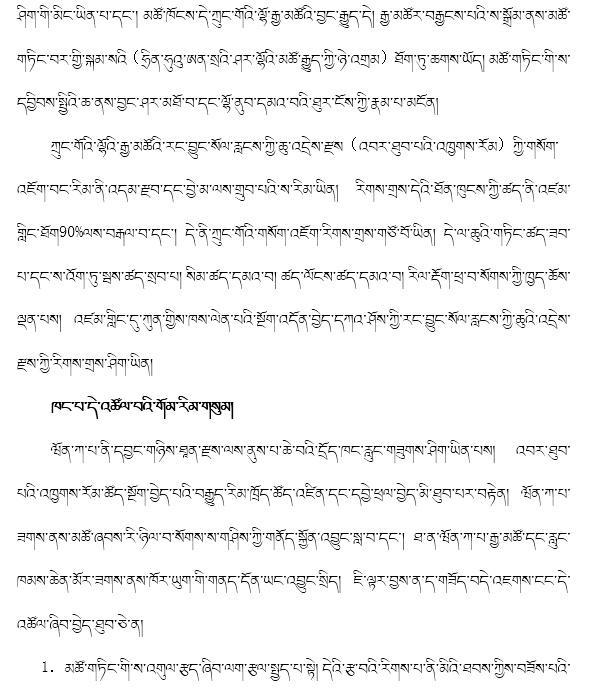 ཤིག་གི་མིང་ཡིན་པ་དང་། མཚོ་ཁོངས་དེ་ཀྲུང་གོའི་ལྷོ་རྒྱ་མཚོའི་བྱང་རྒྱུད་དེ། རྒྱ་མཚོར་བརྒྱངས་པའི་ས་སྒྲོམ་ནས་མཚོ་
གཏིང་བར་གྱི་སྐམ་སའི (ཧྲིན་ཧུའུ་ཨན་སྲའི་ཤར་ལྷོའི་མཚོ་རྒྱུད་ཀྱི་ཉེ་འགྲམ) ཐོག་ཏུ་ཆགས་ཡོད། མཚོ་གཏིང་གི་ས་
དབྱིབས་སྤྱིའི་ཆ་ནས་བྱང་ཤར་མཐོ་བ་དང་ལྷོ་ནུབ་དམའ་བའི་ཐུར་ངོས་ཀྱི་རྣམ་པ་མངོན།
ཀྲུང་གོའི་ལྷོའི་རྒྱ་མཚོའི་རང་བྱུང་སོལ་རླངས་ཀྱི་ཆུ་འདྲེས་རྫས (འབར་ཐུབ་པའི་འཁྱགས་རོམ) ཀྱི་གསོག་
འཇོག་བང་རིམ་ནི་འདམ་རྫབ་དང་བྱེ་མ་ལས་གྲུབ་པའི་ས་རིམ་ཡིན། རིགས་གྲས་དེའི་ཐོན་ཁུངས་ཀྱི་ཚད་ནི་འཛམ་
གླིང་ཐོག90%ལས་བརྒལ་བ་དང་། དེ་ནི་ཀྲུང་གོའི་གསོག་འཇོག་རིགས་གྲས་གཙོ་བོ་ཡིན། དེ་ལ་ཆུའི་གཏིང་ཚད་ཟབ་
པ་དང་ས་འོག་ཏུ་སྦས་ཚད་སྲབ་པ། སིམ་ཚད་དམའ་བ། ཚད་ལོངས་ཚད་དམའ་བ། རིལ་རྡོག་ཕྲ་བ་སོགས་ཀྱི་ཁྱད་ཆོས་
ལྡན་པས། འཛམ་གླིང་དུ་ཀུན་གྱིས་ཁས་ལེན་པའི་སྔོག་འདོན་བྱེད་དཀའ་ཤོས་ཀྱི་རང་བྱུང་སོལ་རླངས་ཀྱི་ཆུའི་འདྲེས་
རྫས་ཀྱི་རིགས་གྲས་ཤིག་ཡིན།
ཁང་པ་དེ་འཚོལ་བའི་གོམ་རིམ་གསུམ།
ཝོན་ཀ་པ་ནི་དབྱང་གཉིས་ཐན་རྫས་ལས་ནུས་པ་ཆེ་བའི་དྲོད་ཁང་རླུང་གཟུགས་ཤིག་ཡིན་པས། འབར་ཐུབ་
པའི་འཁྱགས་རོམ་ཚོད་སྔོག་བྱེད་པའི་བརྒྱུད་རིམ་ཁྲོད་ཚོད་འཛིན་དང་དབྱེ་ཕྲལ་བྱེད་མི་ཐུབ་པར་བརྟེན། ཝོན་ཀ་པ་
ཟགས་ནས་མཚོ་ཞབས་རི་ཉིལ་བ་སོགས་ས་གཤིས་ཀྱི་གནོད་སྐྱོན་འབྱུང་སླ་བ་དང་། ཐ་ན་ཝོན་ཀ་པ་རྒྱ་མཚོ་དང་རླུང་
ཁམས་ཆེན་མོར་ཟགས་ནས་ཁོར་ཡུག་གི་གནད་དོན་ཡང་འབྱུང་སྲིད། ཇི་ལྟར་བྱས་ན་ད་གཟོད་བདེ་འཇགས་ངང་དེ་
འཚོལ་ཞིབ་བྱེད་ཐུབ་ཅེ་ན།
1. མཚོ་གཏིང་གི་ས་འགུལ་རྩད་ཞིབ་ལག་རྩལ་སྤྱད་པ་སྟེ། དེའི་རྩ་བའི་རིགས་པ་ནི་མིའི་ཐབས་ཀྱིས་བཟོས་པའི་